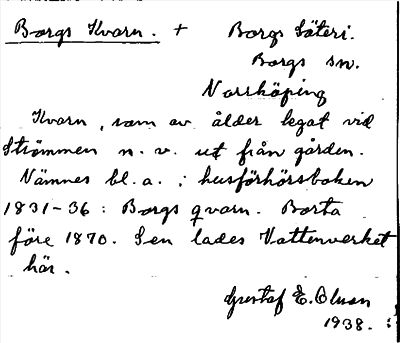 Borgs Kvarn. + Borgs Säteri.
Borgs sn.
Norrköping
Kvarn, som av ålder legat vid
Strömmen n. v. ut från gården.
Nämnes bl. a. i husförhörsboken
1831-36: Borgs qvarn. Borta
före 1870. Sen lades Vattenverket
här.
Gustaf E. Olson
1938.